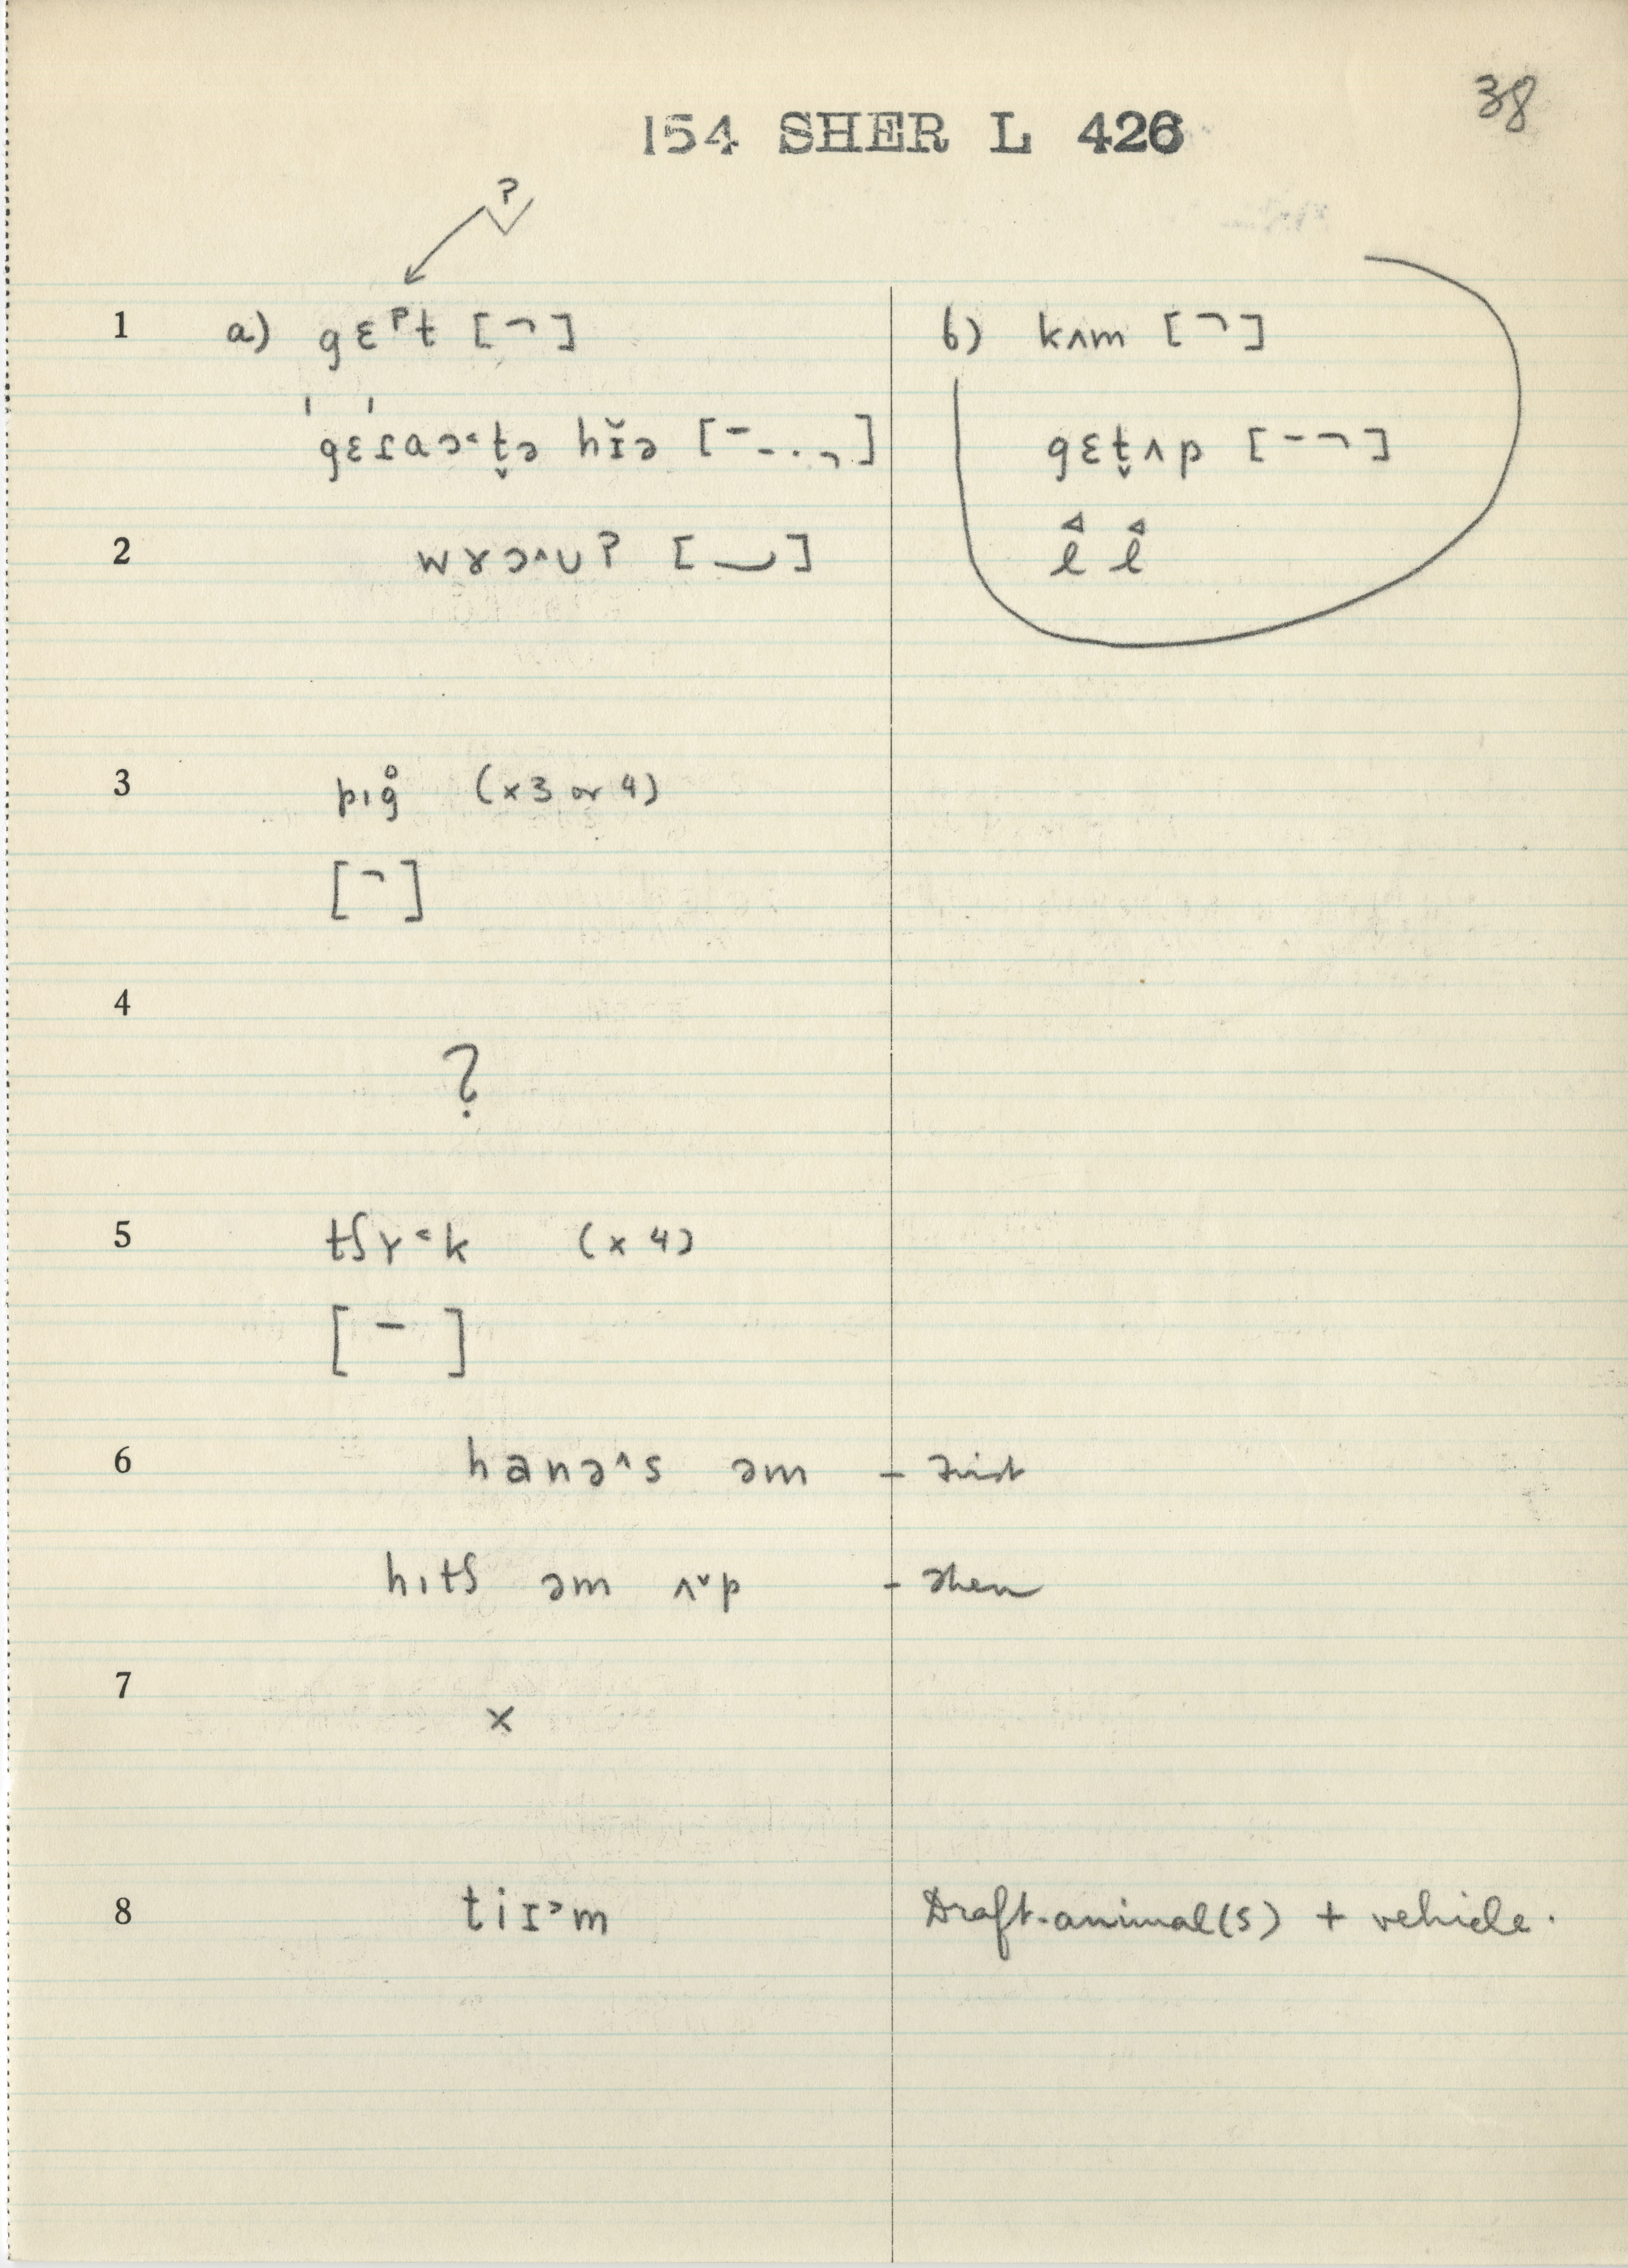 38
154 SHER L 426
ʔ
1 a) gɛˀt [¬] b) kʌm [¬]
ˈgɛɾaɔ˂t̬ə hɪ̆ə [¯-·¬] gɛt̬ʌp [-¬]
2 wɤɔ˄ʊʔ [‿]
3 pıg̊ (x3 or 4)
[¬]
4
?
5 tʃɤ˂k (x 4)
[-]
6 hanə˄s əm - first
hıtʃ əm ʌ˅p - then
7
x
8 tiɪ˃m Draft-animal(s) + vehicle.